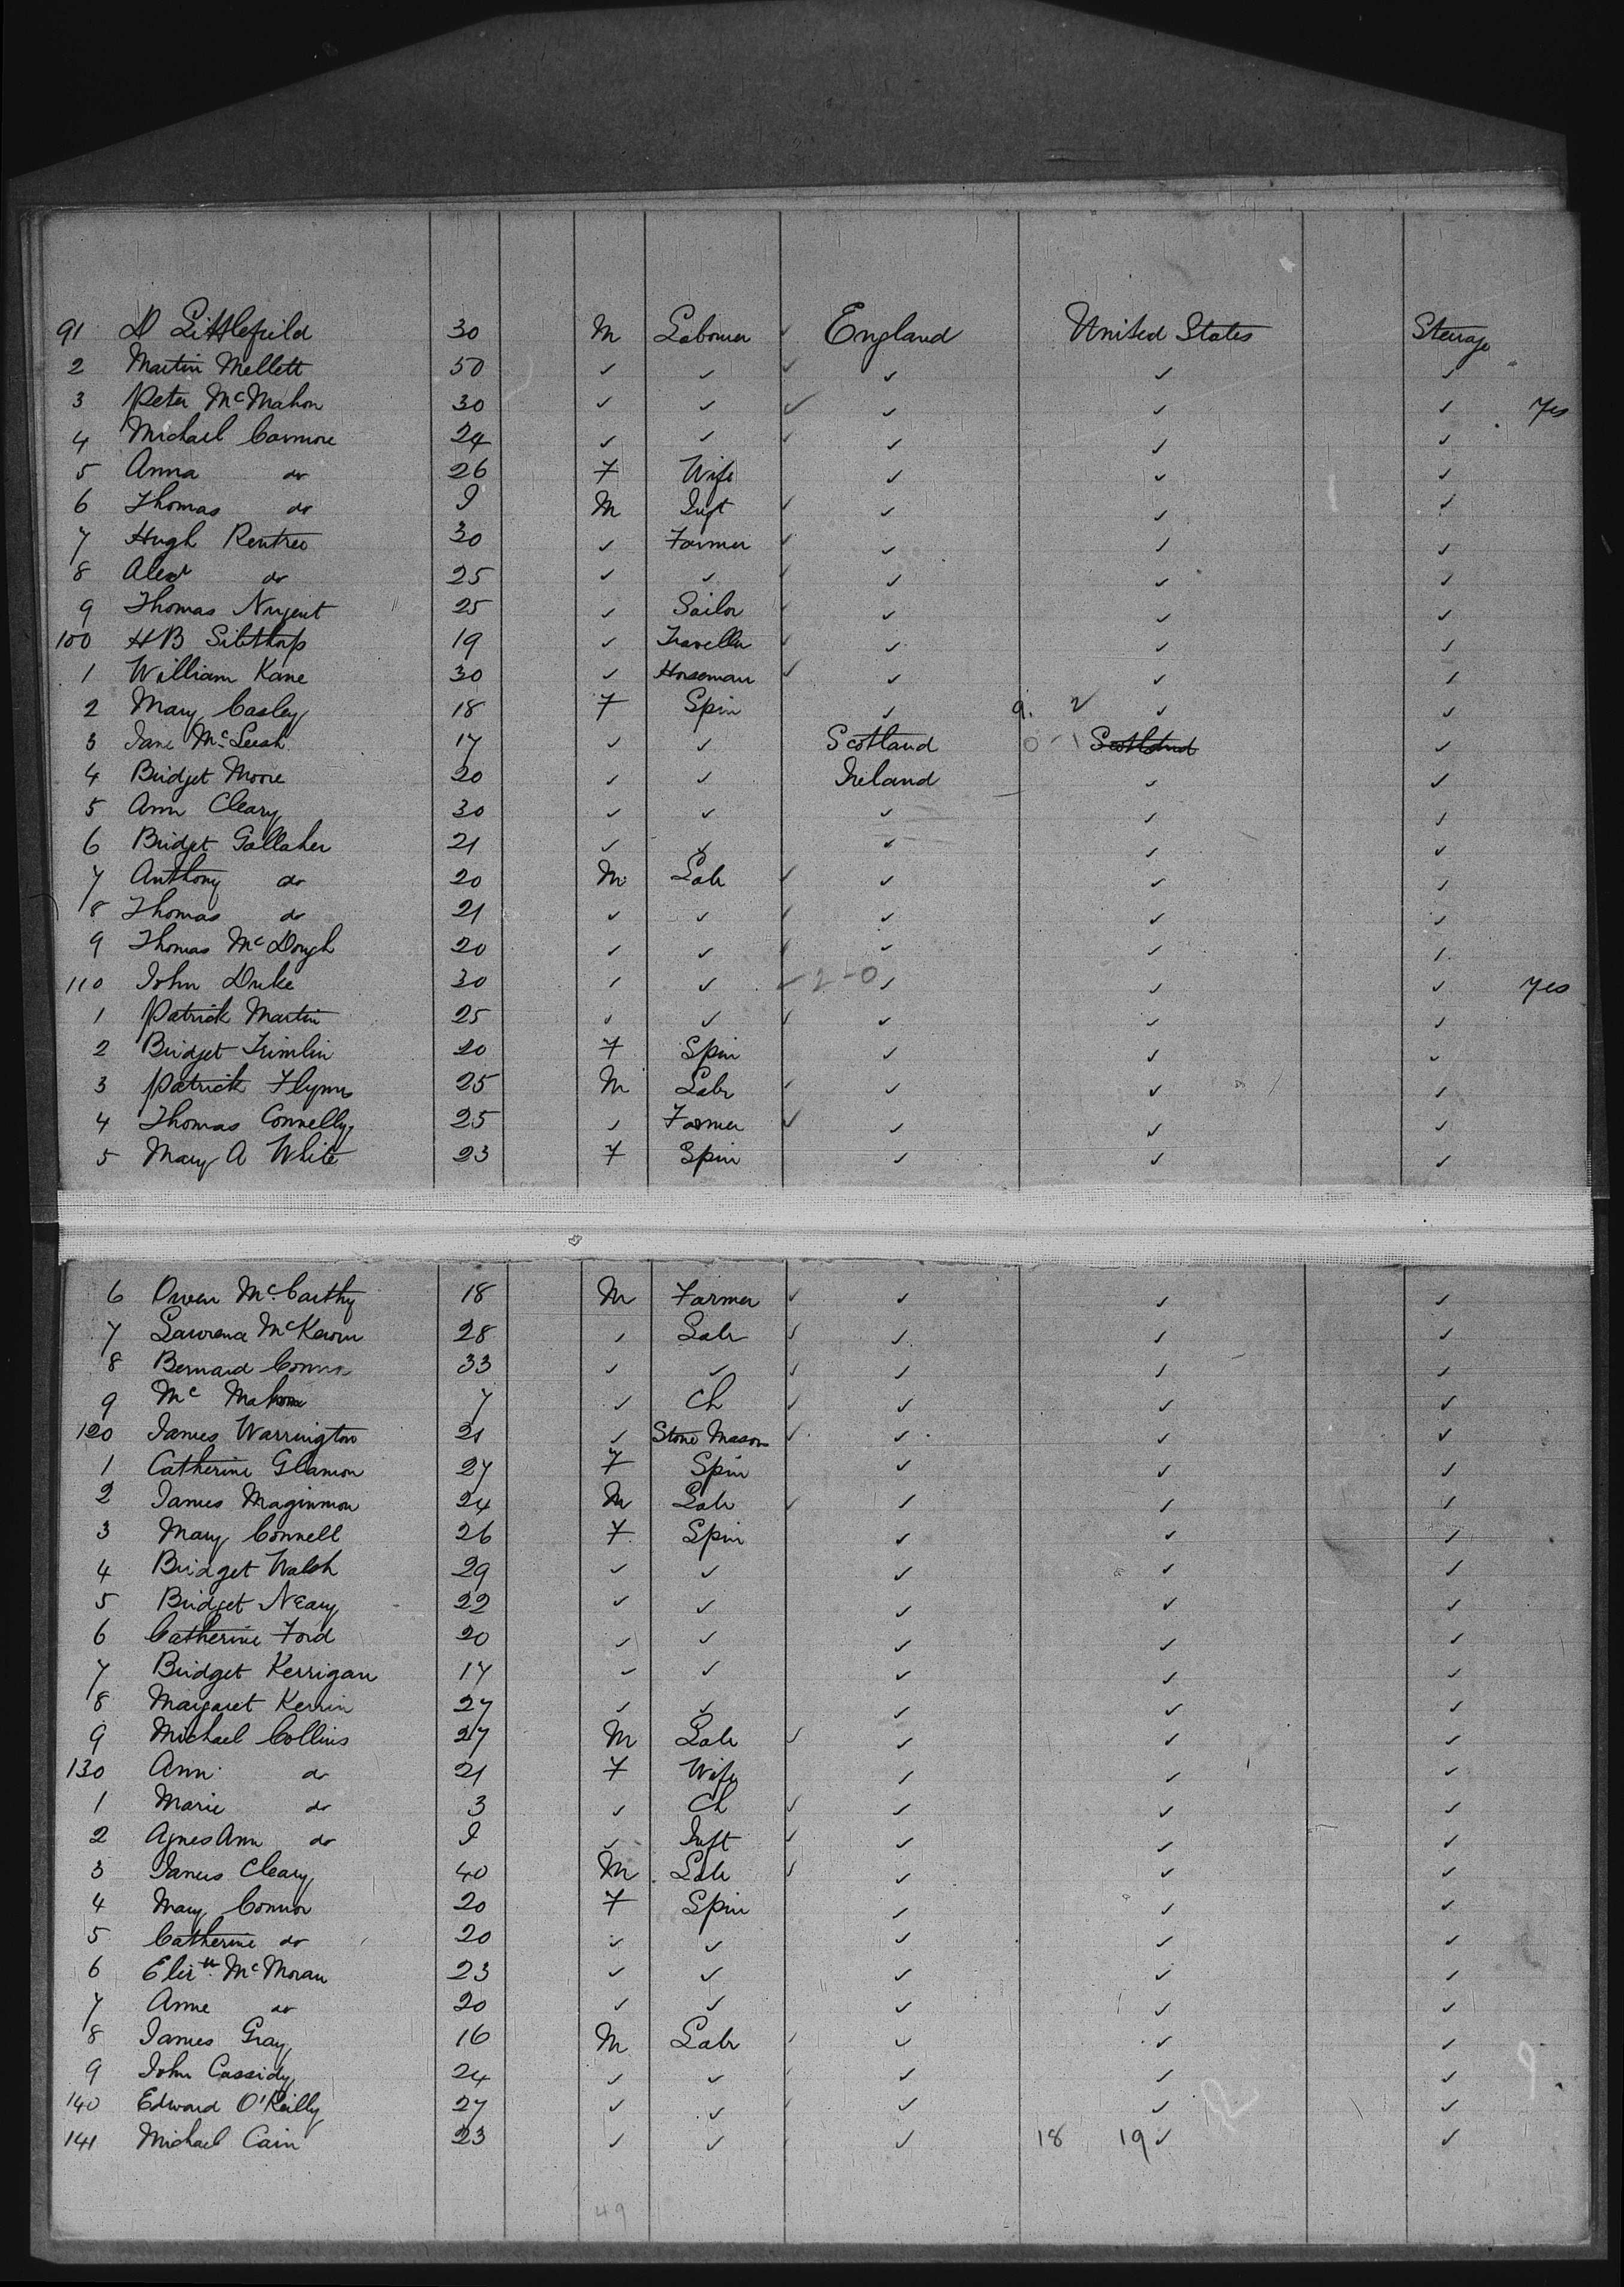 91 D Littlefield 30 M Labourer ✓ England United States Steerage
2 Martin Mellett 50 ✓ ✓ ✓ ✓ ✓ ✓
3 Peter McMahon 30 ✓ ✓ ✓ ✓ ✓ ✓ Yes
4 Michael 24 ✓ ✓ ✓ ✓ ✓ ✓
5 Anna do 26 F Wife ✓ ✓ ✓
6 Thomas do M Inft ✓ ✓ ✓ ✓
7 Hugh Rentree 30 ✓ Farmer ✓ ✓ ✓ ✓
8 Alexr do 25 ✓ ✓ ✓ ✓ ✓ ✓
9 Thomas Nugent 25 ✓ Sailor ✓ ✓ ✓ ✓
100 H B Sibthorp 19 ✓ Traveller ✓ ✓ ✓ ✓
1 William Kane 30 ✓ Horseman ✓ ✓ ✓ ✓
2 Mary Casley 18 F Spin ✓ 9. 2 ✓ ✓
3 Jane McLeish 17 ✓ ✓ Scotland 0 - 1 Scotland ✓
4 Bridget Moore 20 ✓ ✓ Ireland ✓ ✓
5 Ann Cleary 30 ✓ ✓ ✓ ✓ ✓
6 Bridget Gallaher 21 ✓ ✓ ✓ ✓ ✓
7 Anthony do 20 M Labr ✓ ✓ ✓ ✓
8 Thomas do 21 ✓ ✓ ✓ ✓ ✓ ✓
9 Thomas McDongh 20 ✓ ✓ ✓ ✓ ✓ ✓
110 John Duke 30 ✓ ✓ ✓ 2-0 ✓ ✓ ✓ Yes
1 Patrick Martin 25 ✓ ✓ ✓ ✓ ✓ ✓
2 Bridget Timlin 20 F Spin ✓ ✓ ✓
3 Patrick Flynn 25 M Labr ✓ ✓ ✓ ✓
4 Thomas Connelly 25 ✓ Farmer ✓ ✓ ✓ ✓
5 Mary A White 23 F Spin ✓ ✓ ✓
6 Owen McCarthy 18 M Farmer ✓ ✓ ✓ ✓
7 Lawrence McKeown 28 ✓ Labr ✓ ✓ ✓ ✓
8 Bernard Connor 33 ✓ ✓ ✓ ✓ ✓ ✓
9 Mc Mahon 7 ✓ Ch ✓ ✓ ✓ ✓
120 James Warrington 21 ✓ Stone Mason ✓ ✓ ✓ ✓
1 Catherine Glamon 27 F Spin ✓ ✓ ✓
2 James Maginmon 24 M Labr ✓ ✓ ✓ ✓
3 Mary Connell 26 F Spin ✓ ✓ ✓
4 Bridget Walsh 29 ✓ ✓ ✓ ✓ ✓
5 Bridget Neary 22 ✓ ✓ ✓ ✓ ✓
6 Catherine Ford 20 ✓ ✓ ✓ ✓ ✓
7 Bridget Kerrigan 17 ✓ ✓ ✓ ✓ ✓
8 Margaret Kerrin 27 ✓ ✓ ✓ ✓ ✓
9 Michael Collins 27 M Labr ✓ ✓ ✓ ✓
130 Ann do 21 F Wife ✓ ✓ ✓
1 Marie do 3 ✓ Ch ✓ ✓ ✓ ✓
2 Agnes Ann do ✓ Inft ✓ ✓ ✓ ✓
3 James Cleary 40 M Labr ✓ ✓ ✓ ✓
4 Mary Connor 20 F Spin ✓ ✓ ✓
5 Catherine do 20 ✓ ✓ ✓ ✓ ✓
6 Elizth McMoran 23 ✓ ✓ ✓ ✓ ✓
7 Anne do 20 ✓ ✓ ✓ ✓ ✓
8 James Gray 16 M Labr ✓ ✓ ✓ ✓
9 John Cassidy 24 ✓ ✓ ✓ ✓ ✓ ✓
140 Edward O'Reilly 27 ✓ ✓ ✓ ✓ ✓ ✓
141 Michael Cain 23 ✓ ✓ ✓ ✓ 18 19 ✓ ✓
49